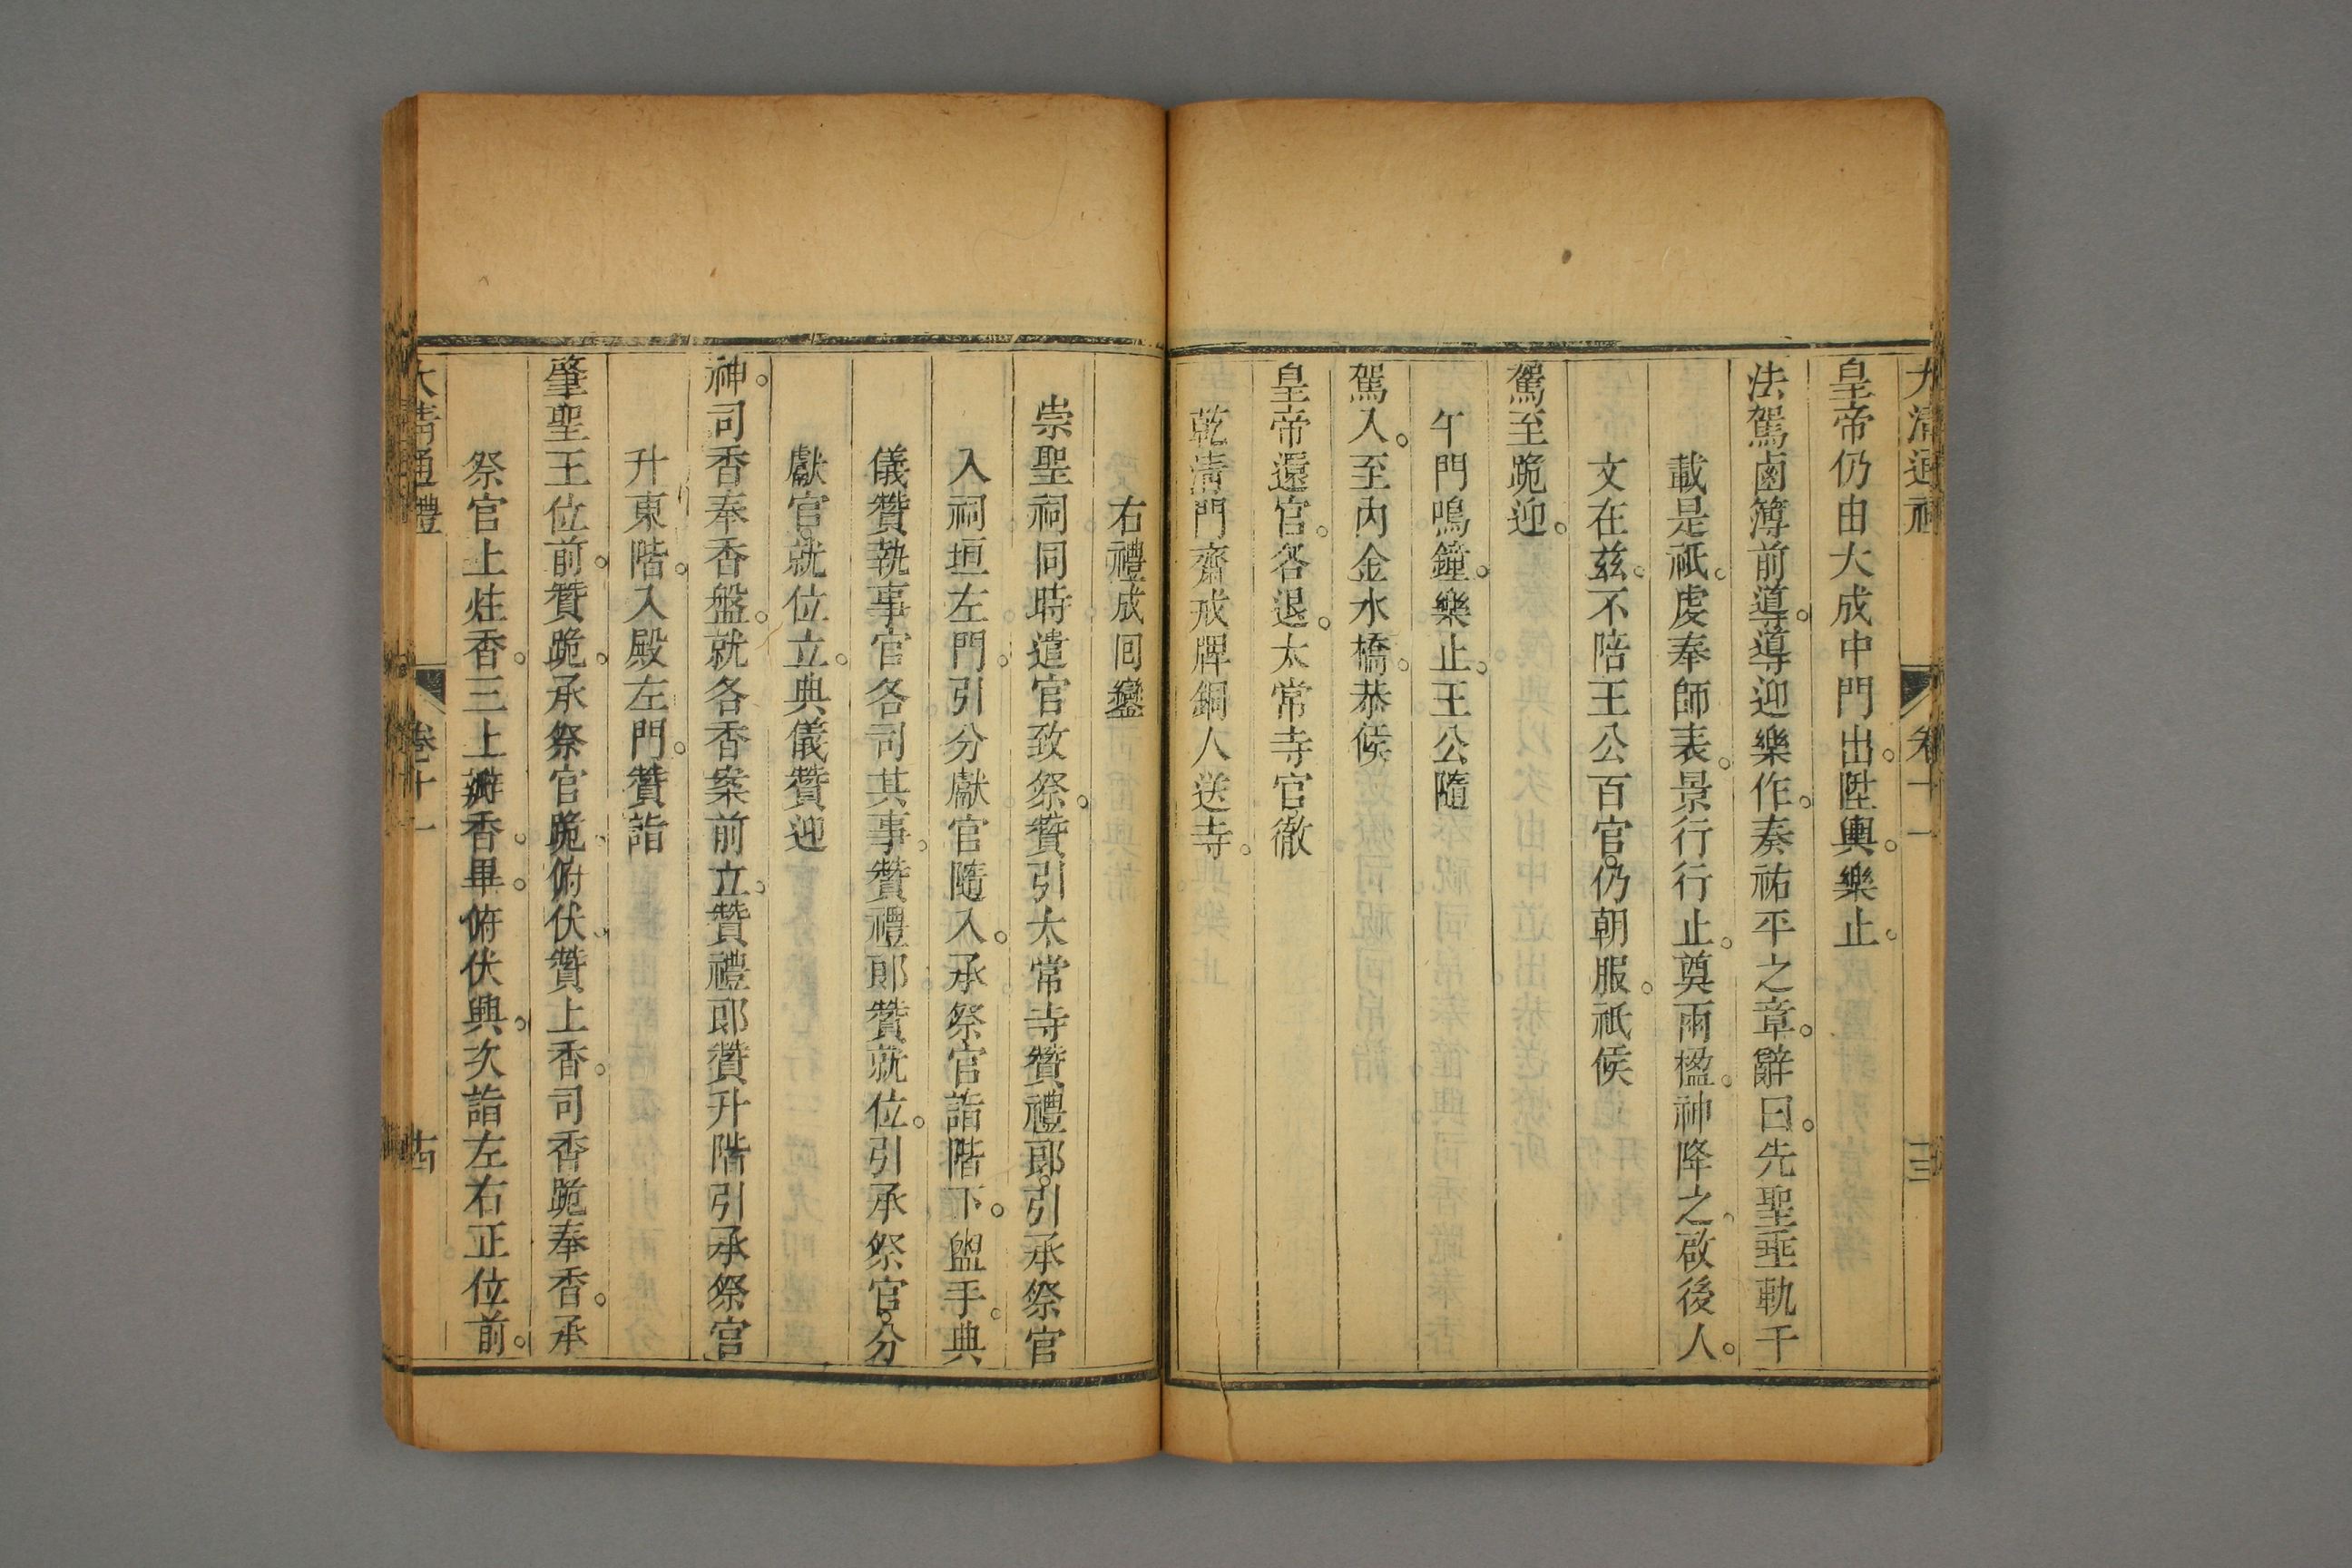 大清通禮 卷十一 十三
皇帝仍由大成中門出。陞輿。樂止。
法駕鹵簿前導。導迎樂作。奏祐平之章。辭曰。先聖垂軌千
載是祗。虔奉師表。景行行止。奠兩楹。神降之。啟後人。
文在兹。不陪王公百官。仍朝服。祗候
駕至跪迎。
午門鳴鐘。樂止。王公隨
駕入。至內金水橋。恭候
皇帝還宮。各退。太常寺官徹
乾清門齋戒牌銅人送寺。
右禮成囘鑾
崇聖祠同時遣官致祭。贊引太常寺贊禮郎。引承祭官
入祠垣左門。引分獻官隨入。承祭官詣階下。盥手。典
儀贊執事官各司其事。贊禮郎贊就位。引承祭官。分
獻官。就位立。典儀贊迎
神。司香奉香盤。就各香案前立。贊禮郎贊升階引承祭官
升東階。入殿左門。贊詣
肇聖王位前。贊跪。承祭官跪。俯伏。贊上香。司香跪奉香。承
祭官上炷香。三上瓣香。畢。俯伏興。次詣左右正位前。
大清通禮 卷十一 十四